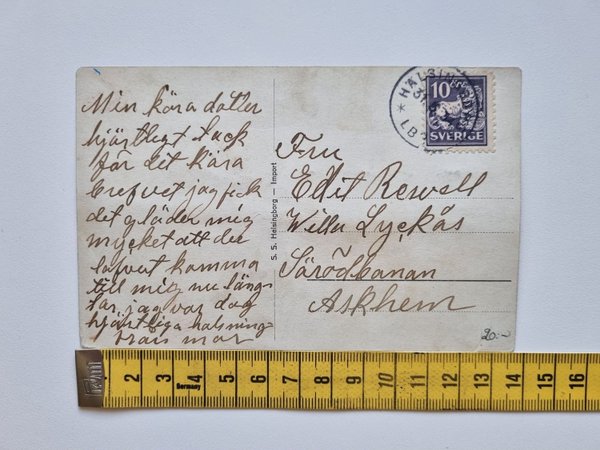 Min kära dotter
hjärtligt tack
för det kära
brefvet jag fick
det gläder mig
mycket att du
lofvat komma
till mig nu läng-
tar jag var dag
hjärtliga hälsning
från mor
S. S. Helsingborg — Import
HÄLSIN
LB
10
SVERIGE
Fru
Edit Reswell
Villa Lyckås
Särödbanan
Askhem
20:-
2 3 4 5 6 7 8 9 10 11 12 13 14 15 16
Germany